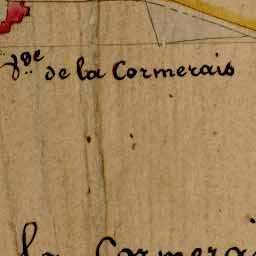 de la Cormerais
la Cormerai